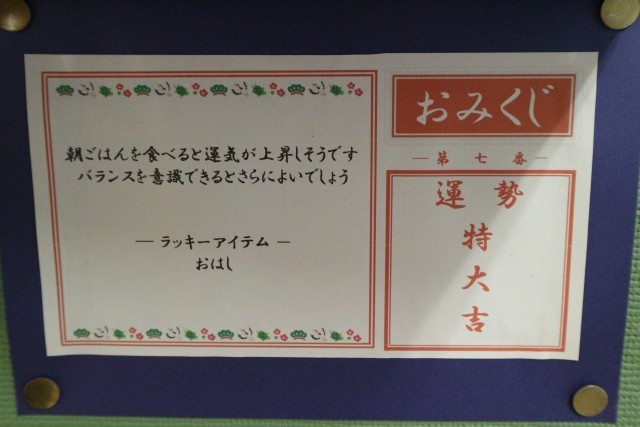 おみくじ
― 第七番 ―
運勢
特大吉
朝ごはんを食べると運気が上昇しそうです
バランスを意識できるとさらによいでしょう
― ラッキーアイテム ―
おはし